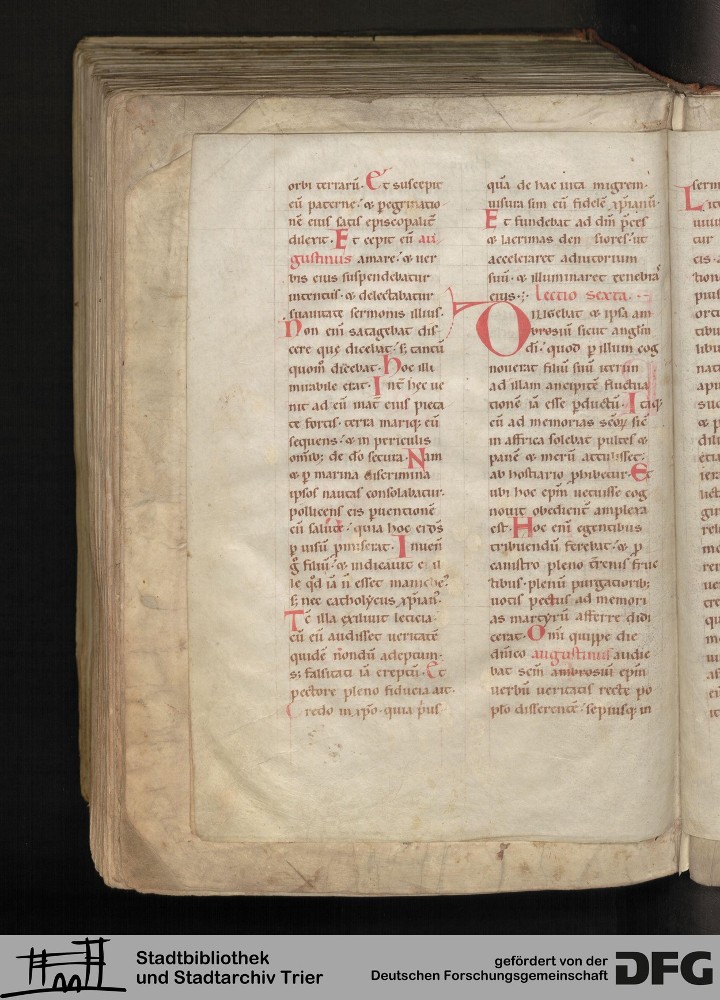 orbi terrarū. Et suscepit
eū paterne. & peg̃rinatio
nē eius satis episcopalit̄
dilexit. Et cepit eū au
gustinus amare. & uer
bis eius suspendebatur
intentus. & delectabatur
suauitate sermonis illius.
Non eni͂ satagebat dis
cere que dicebat. s; tantū
quom̊ dicebat. Hoc illi
mirabile erat. Int̄ hec ue
nit ad eū mat̄ eius pieta
te fortis. terra mariq; eū
sequens. & in periculis
om̄ib; de do secura. Nam
& p marina discrimina
ipsos nautas consolabatur.
pollicens eis puentionē
cū salute. quia hoc ei ds̄
p uisū pmiserat. Inuen
g̊ filiū. & indicauit
le qd̄ iā n̄ esset maniche
s; nec catholycus xp̄ian
Tc̄ illa exiliuit leticia.
cū eū audisset ueritatē
quidē nondū adeptum.
s; falsitati iā ereptū. Et
pectore pleno fiducia ait.
Credo in xp̄o. quia p̄us
quā de hac uita migrem.
uisura sim eū fidelē xp̄ianū.
Et fundebat ad dm̄ p̄ces
& lacrimas den siores. ut
acceleraret adiutorium
suū. & illuminaret tenebras
eius. Lectio sexta.
Diligebat & ipsa am
brosiū sicut angl̄m
di. quod p illum cog
nouerat filiū suū iterim
ad illam ancipitē fluctua
tionē iā esse pductū. Itaq;
cū ad memorias scōꝝ sic̄
in affrica solebat pultes &
panē & merū attulisset.
ab hostiario phibetur. Et
ubi hoc ep̄m uetuisse cog
nouit obedient̄ amplexa
est. Hoc eni͂ egentibus
tribuendū ferebat. & p
canistro pleno t̄renis fruc
tibus. plenū purgatiorib;
uotis pectus ad memori
as martyrū afferre didi
cerat. Omi͂ quippe die
dn̄ico augustinus audie
bat scm̄ ambrosiū ep̄m
uerbū ueritatis recte po
plo disserentē. sepiusq; in
Stadtbibliothek
und Stadtarchiv Trier
gefördert von der
Deutschen Forschungsgemeinschaft
DFG